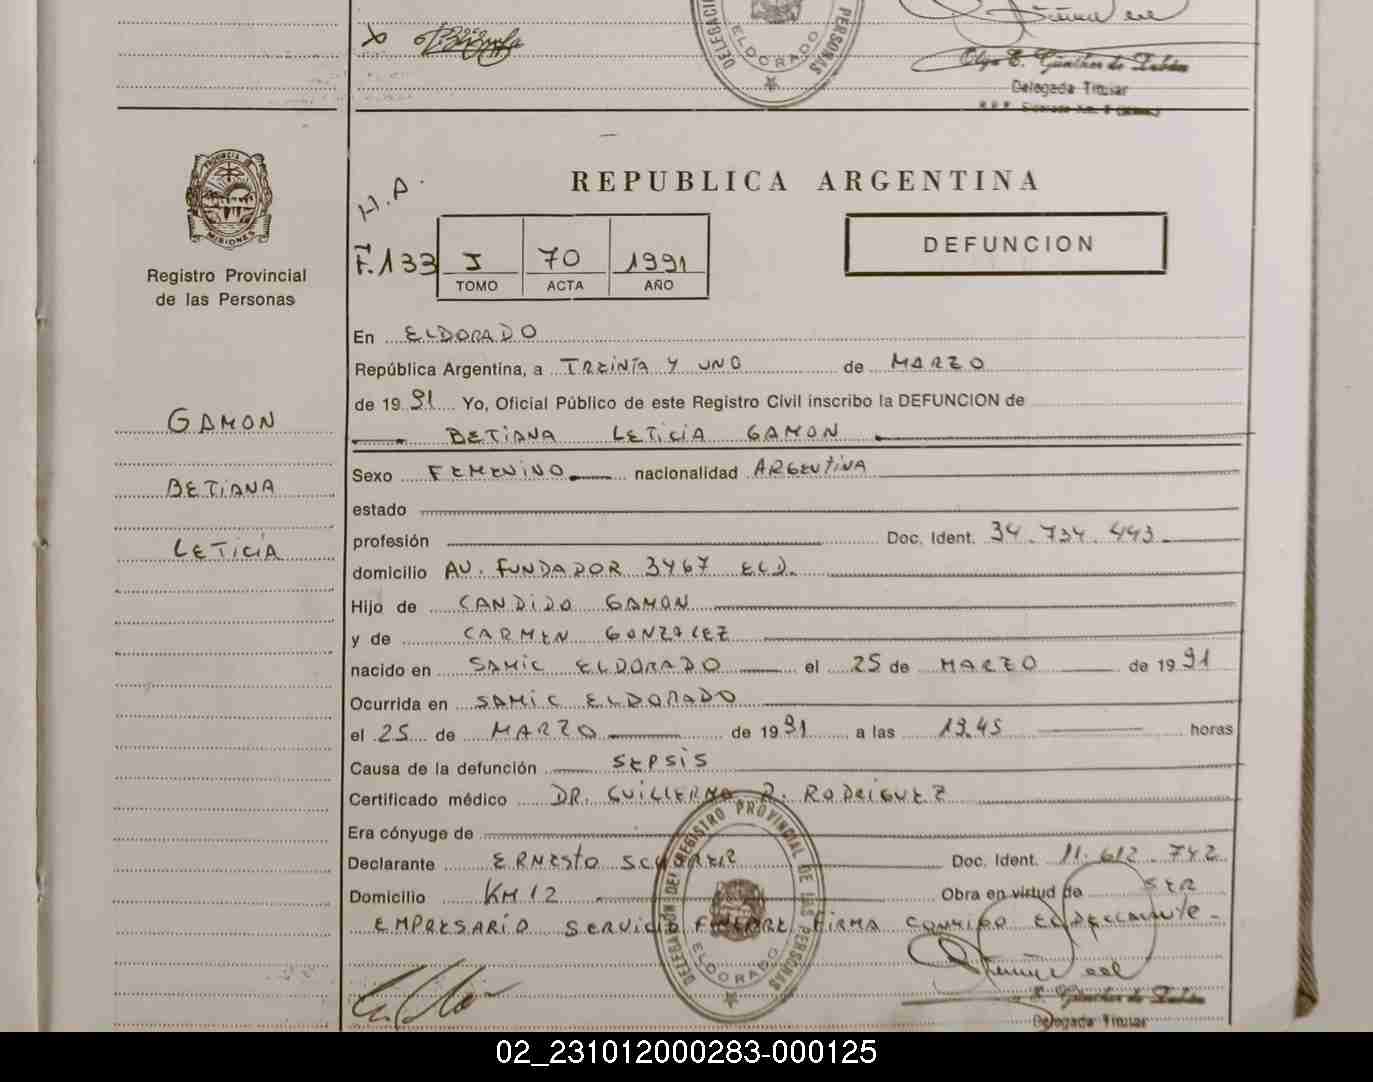 DELEGACI
PERSONAS
ELDORADO
Olga E. Günther de Dubán
Delegada Titular
PROVINCIA DE
MISIONES
Registro Provincial
de las Personas
H.A.
REPUBLICA ARGENTINA
F.133
I 70 1991
TOMO ACTA AÑO
DEFUNCION
En ELDORADO
República Argentina, a TREINTA Y UNO de MARZO
de 1991 Yo, Oficial Público de este Registro Civil inscribo la DEFUNCION de
BETIANA LETICIA GAMON
GAMON
BETIANA
LETICIA
Sexo FEMENINO nacionalidad ARGENTINA
estado
profesión Doc. Ident. 34.734.443.
domicilio AV. FUNDADOR 3467 ELD.
Hijo de CANDIDO GAMON
y de CARMEN GONZALEZ
nacido en SAMIC ELDORADO el 25 de MARZO de 1991
Ocurrida en SAMIC ELDORADO
el 25 de MARZO de 1991 a las 19.45 horas
Causa de la defunción SEPSIS
Certificado médico DR. GUILLERMO R. RODRIGUEZ
Era cónyuge de
Declarante ERNESTO Doc. Ident. 11.612.742
Domicilio KM 12 Obra en virtud de SER
EMPRESARIO SERVICIO FUNEBRE FIRMA CONMIGO EL DECLARANTE-
DELEGACIÓN DEL REGISTRO PROVINCIAL DE LAS PERSONAS
ELDORADO
E. Günther de Dubán
Delegada Titular
02_231012000283-000125